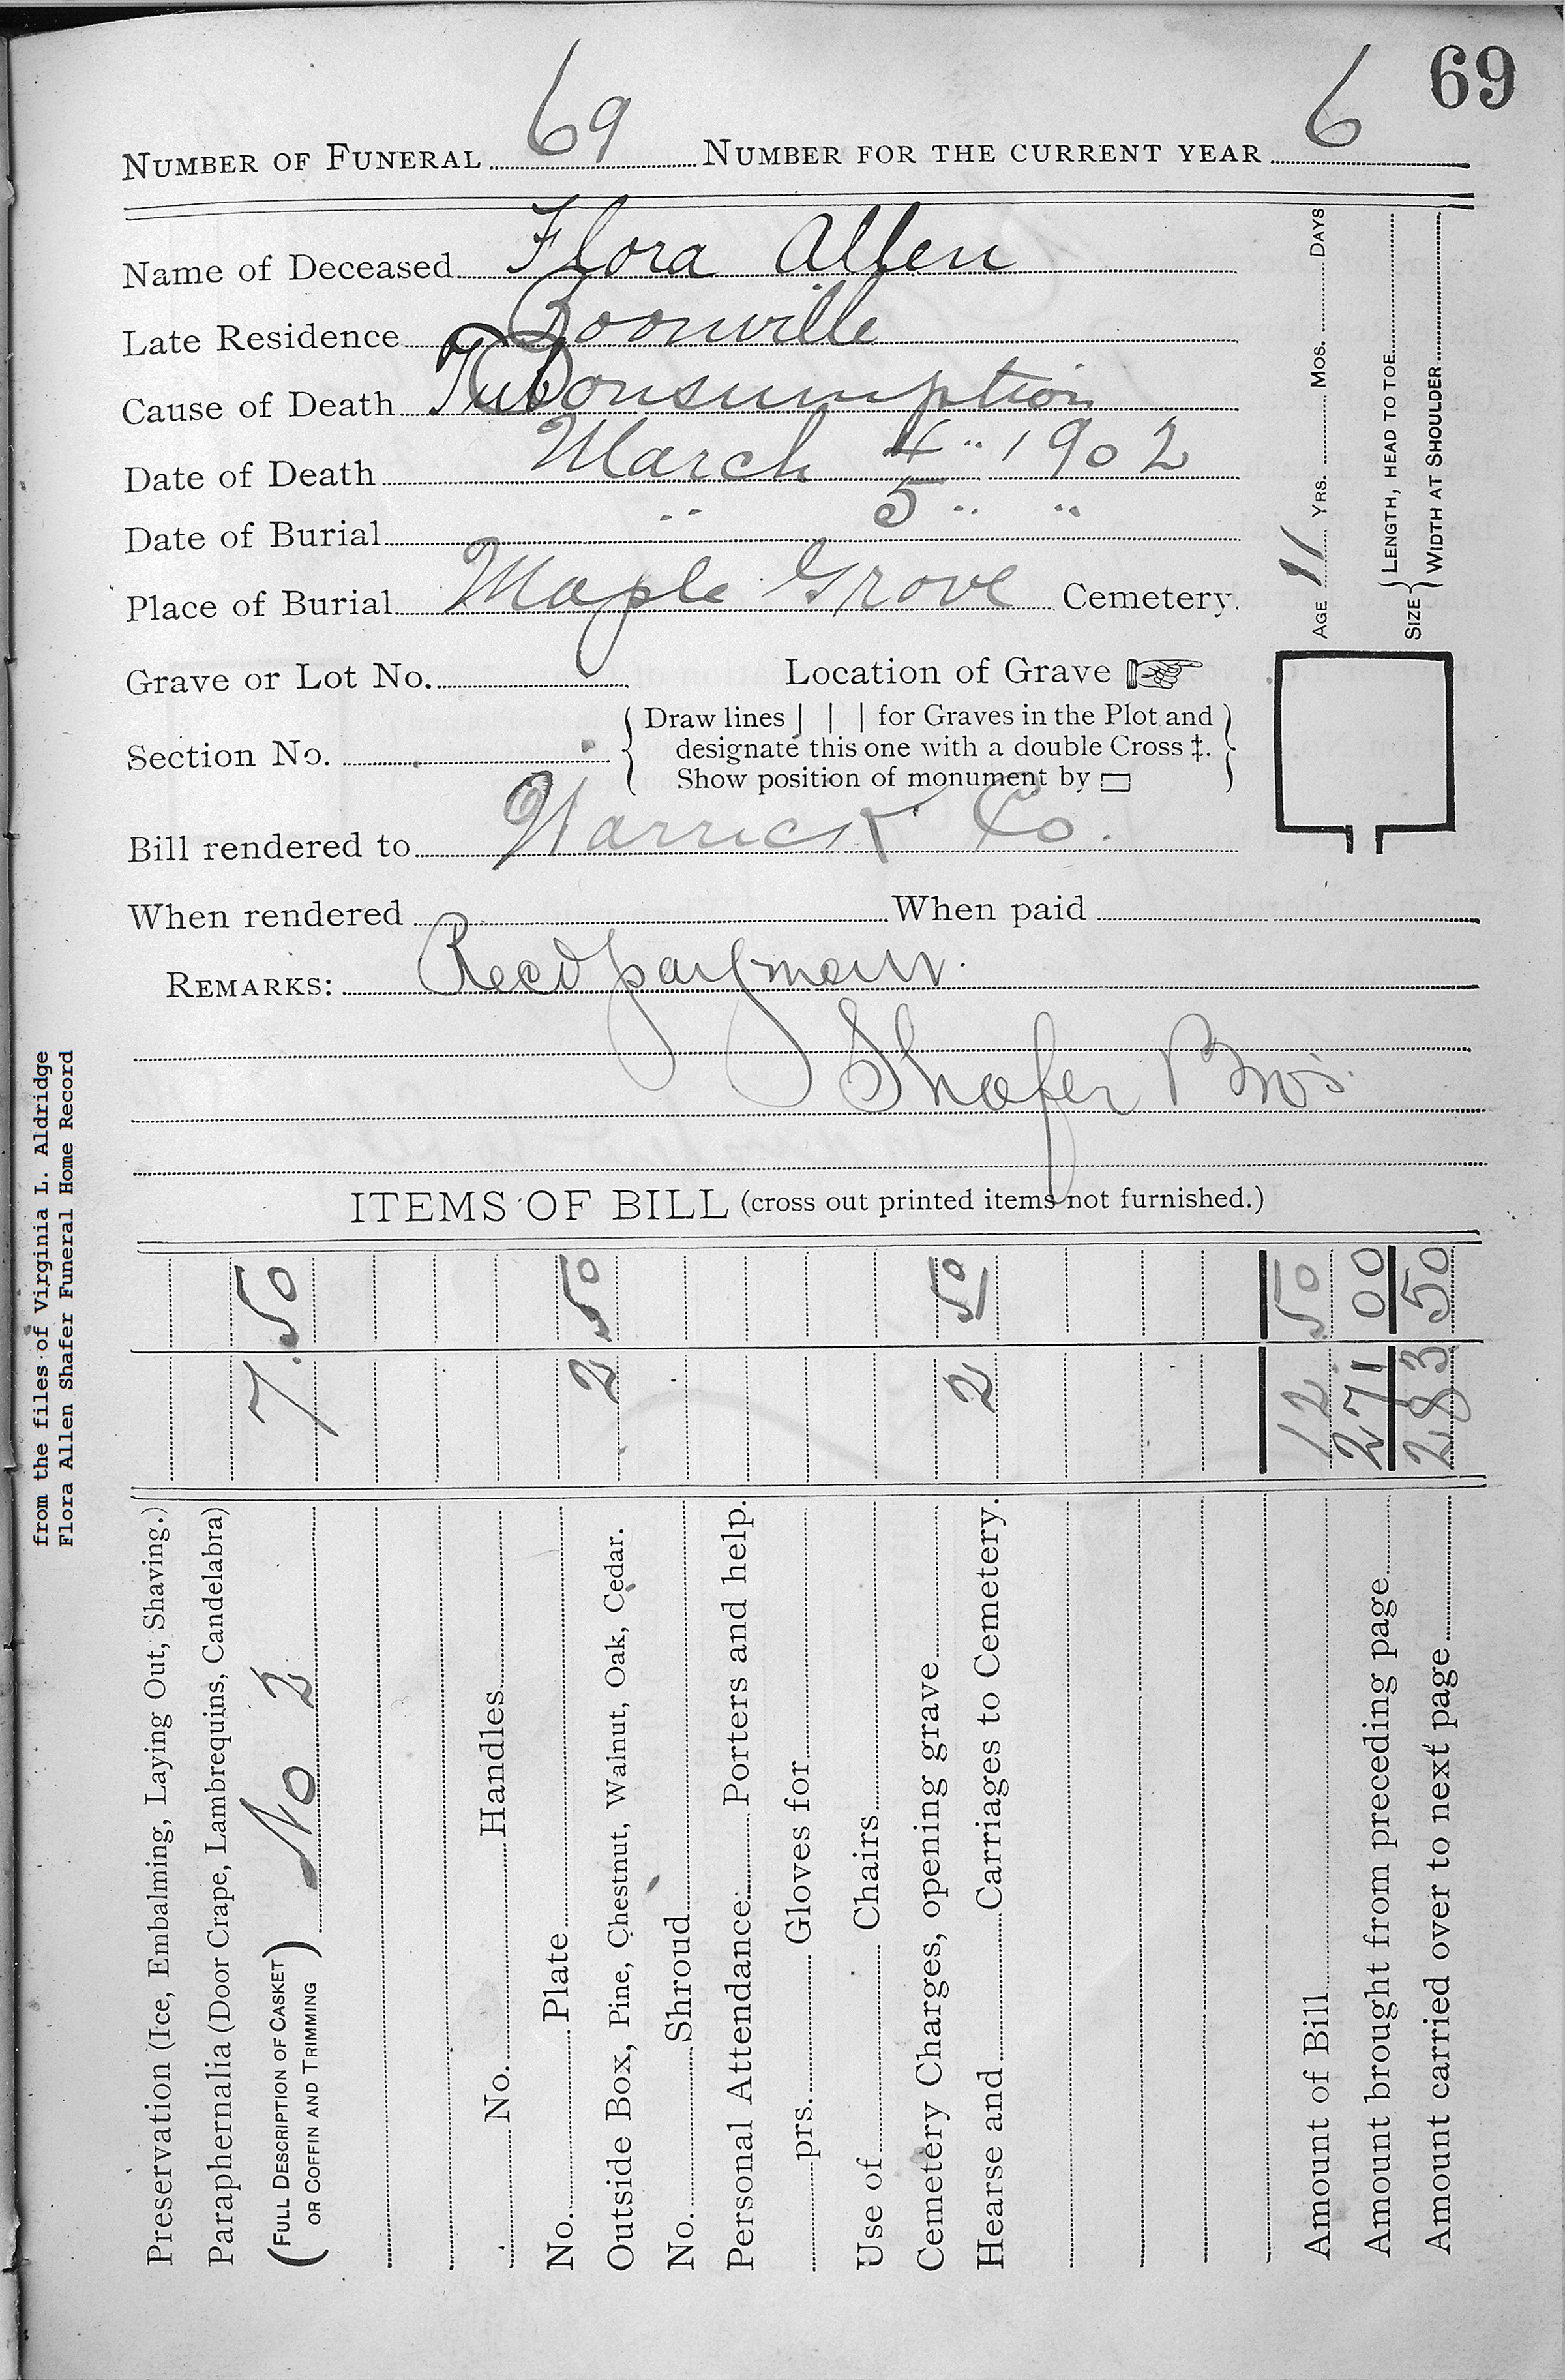 69
NUMBER OF FUNERAL 69 NUMBER FOR THE CURRENT YEAR 6
Name of Deceased Flora Allen
Late Residence Boonville
Cause of Death Tub Consumption
Date of Death March 4" 1902
Date of Burial " 5 " "
Place of Burial Maple Grove Cemetery.
AGE 11 YRS. MOS. DAYS
SIZE { LENGTH, HEAD TO TOE
WIDTH AT SHOULDER
Grave or Lot No. Location of Grave
Section No. { Draw lines | | | for Graves in the Plot and }
designate this one with a double Cross ‡.
Show position of monument by ▭
Bill rendered to Warrick Co.
When rendered When paid
REMARKS: Recd payment
Shafer Bros
from the files of Virginia L. Aldridge
Flora Allen Shafer Funeral Home Record
ITEMS OF BILL (cross out printed items not furnished.)
Preservation (Ice, Embalming, Laying Out, Shaving.)
Paraphernalia (Door Crape, Lambrequins, Candelabra)
(FULL DESCRIPTION OF CASKET OR COFFIN AND TRIMMING) No 2 7.50
No. Handles
No. Plate
Outside Box, Pine, Chestnut, Walnut, Oak, Cedar. 2 50
No. Shroud
Personal Attendance Porters and help.
prs. Gloves for
Use of Chairs
Cemetery Charges, opening grave
Hearse and Carriages to Cemetery. 2 50
Amount of Bill 12 50
Amount brought from preceding page 271 00
Amount carried over to next page 283 50